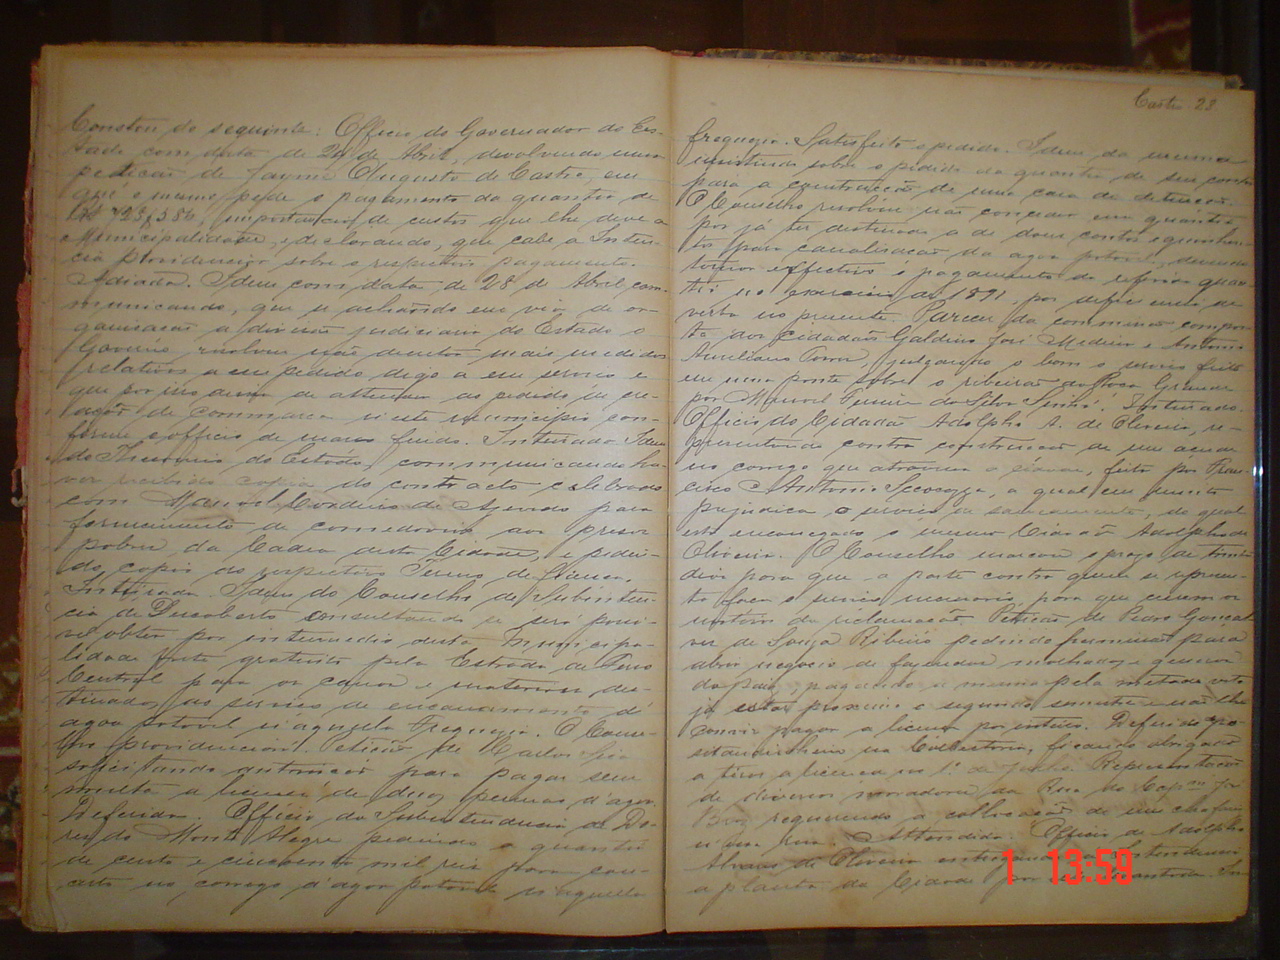 Constou do seguinte: Officio do Governador do Es-
tado com data de 24 de Abril, devolvendo uma
petição de Jayme Augusto de Castro, em
que o mesmo pede o pagamento da quantia de
723$586, importancia de custas que lhe deve a
Municipalidade, e declarando, que cabe a Inten-
cia providenciar sobre o respectivo pagamento.
Adiada. Idem com data de 28 de Abril com-
municando, que se achando em via de or-
ganisação a divisão judiciaria do Estado o
Governo resolveu não decretar mais medidas
relativas a em pedido digo a esse serviço e
que por isso deixa de attender ao pedido de cre-
ação de commarca neste municipio con-
forme o officio de Março findo. Inteirado. Idem
do Thesouro do Estado, communicando ha-
ver recebido copia do contracto celebrado
com Manoel Cordeiro de Azevedo para
fornecimento de comedorias aos presos
pobres da Cadea desta Cidade, e pedin-
do copia do respectivo Termo de fiança.
Inteirada. Idem do Conselho de Subinten-
cia de Descoberto consultando se será possi-
vel obter por intermedio desta Municipa-
lidade frete gratuito pela Estrada de Ferro
Central para os canos e materiaes des-
tinados ao serviço de encanamento d'
agoa potavel n'aquella Freguezia. O Conse-
lho providenciará. Petição de Carlos
solicitando autorisação para pagar sem
multa a licença de duas pennas d'agoa.
Deferida. Officio da Subintendencia de Do-
res do Monte Alegre pedindo a quantia
de cento e cincoenta mil reis para con-
certo no corrego d'agoa potavel n'aquella
Castro 23
freguezia. Satisfeito o pedido. Idem, da mesma
insistindo sobre o pedido da quantia de um conto
para a construcção de uma casa de detenção.
O Conselho resolveu não conceder essa quantia
por já ter destinado a de dous contos e quinhen-
tos para canalisação da agoa potavel, devendo
tornar effectivo o pagamento da referida quan-
tia no exercicio de 1891, por deficiencia de
verba no presente. Parecer da commissão compos-
ta dos cidadãos Galdino José Medina e Antonio
Aureliano, julgando o bom o serviço feito
em uma ponte sobre o ribeirão da Roça Grande
por Manoel Pereira da Silva. Inteirado.
Officio do Cidadão Adolpho A. de Oliveira, re-
presentando contra construcção de um açude
no corrego que atravessa a cidade, feito por Fran-
cisco Antonio, a qual em muito
prejudica o serviço de saneamento, de qual
está encarregado o mesmo Cidadão Adolpho de
Oliveira. O Conselho marcou o prazo de trinta
dias para que a parte contra quem se represen-
ta faça o serviço necessario para que cessem os
motivos da reclamação. Petição de Pedro Gonçal-
ves de Souza Ribeiro pedindo para
abrir negocio de fazendas molhados e generos
do paiz, pagando a mesma pela metade visto
já estar proximo o segundo semestre e não lhe
convir pagar a licença por inteiro. Deferido
na Collectoria, ficando obrigado
a tirar a licença no 1º de Julho. Representação
de diversos moradores da Rua do Capm
requerendo a collocação de um chafariz
n'essa rua. Attendida. Officio de Adolpho
Alvaro de Oliveira
a planta da Cidade por
1 13:59